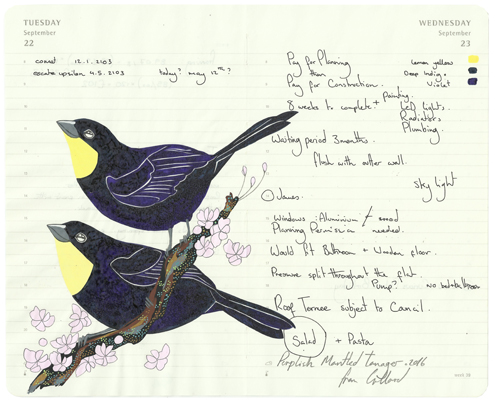 TUESDAY
September
22
comet 12.1.2103
escate upsilon 4.5.2103
today? may 12th?
WEDNESDAY
September
23
lemon yellow
Deep Indigo
Violet
Pay for Planning
then
Pay for Construction.
8 weeks to complete +
Painting.
Led lights.
Radiators
Plumbing.
Waiting period 3 months.
flush with outter wall.
sky light
James.
Windows: Aluminium / wood
Planning Permission needed.
Would fit Bathroom + Wooden floor.
Pressure split throughout the flat.
Pump?
Roof Terrace subject to Council.
Salad + Pasta
Purplish Mantled Tanager. 2016
week 39